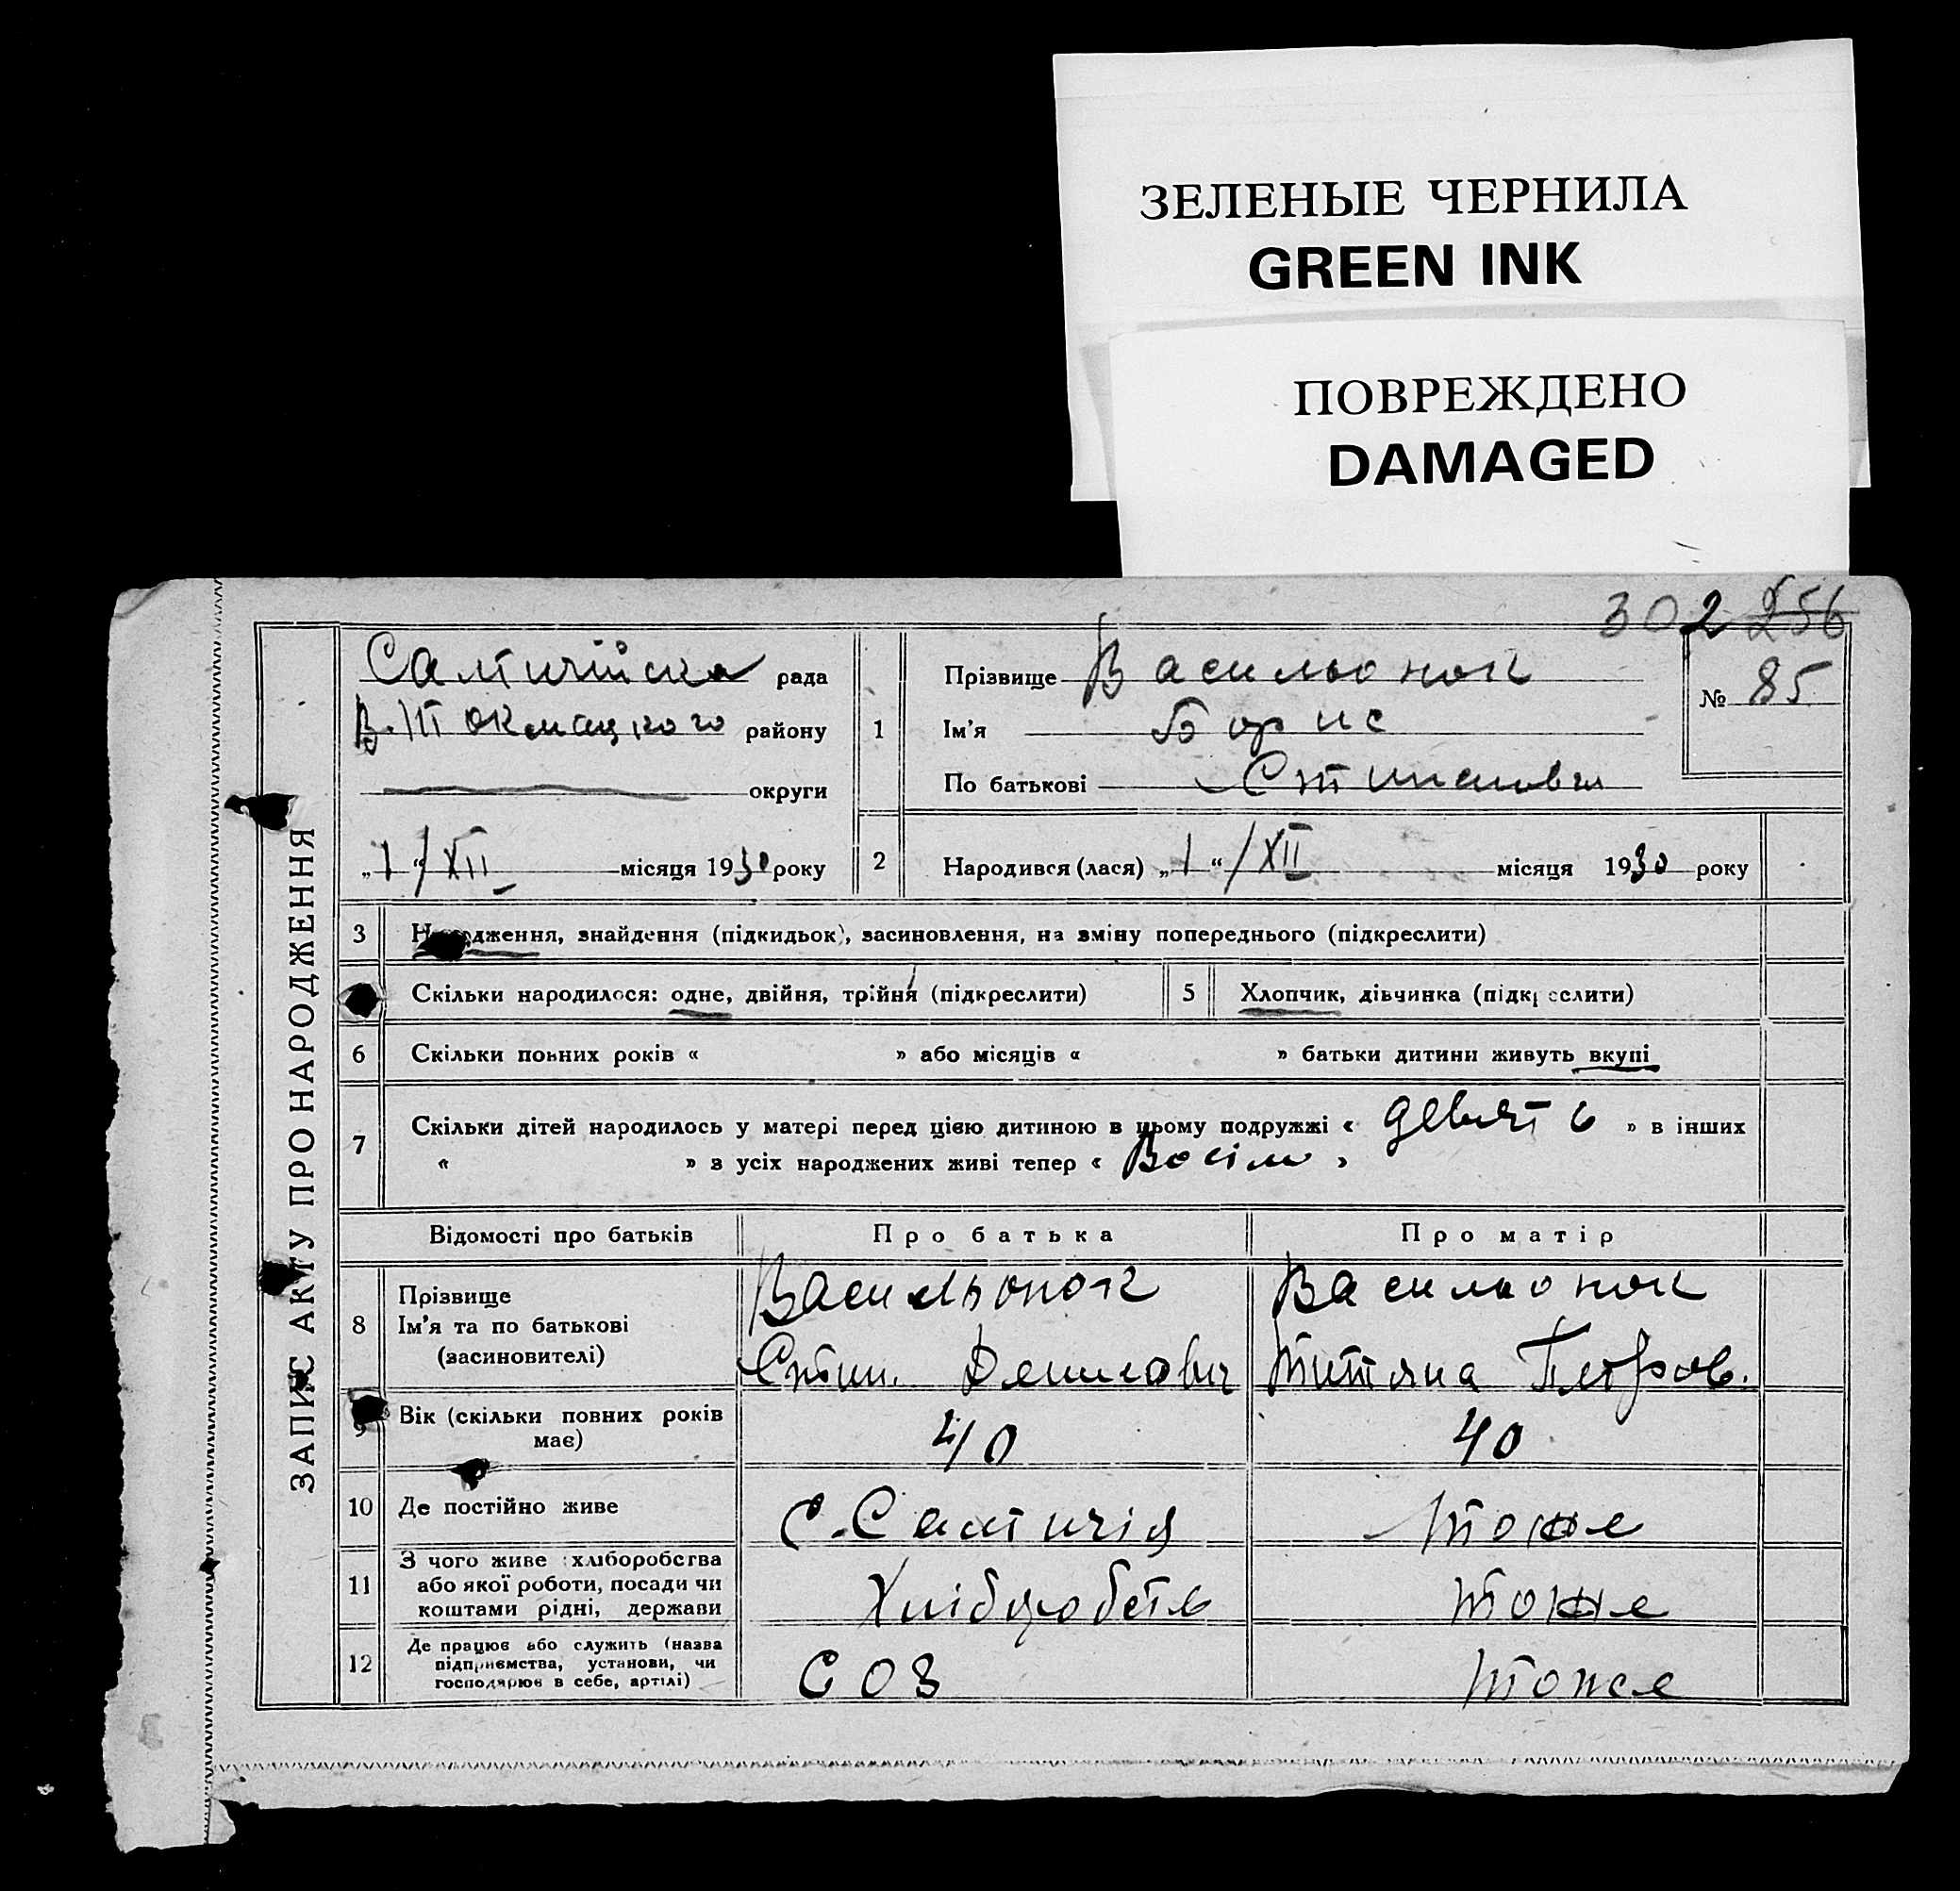 ЗЕЛЕНЫЕ ЧЕРНИЛА
GREEN INK
ПОВРЕЖДЕНО
DAMAGED
302 256
ЗАПИС АКТУ ПРО НАРОДЖЕННЯ
Салтичійска рада
В.-Токмацкого району
округи
„1“/XII місяця 1930 року
1
Прізвище Васильонок
Ім'я Борис
По батькові
№ 85
2 Народився (лася) „1“/XII місяця 1930 року
3 Народження, знайдення (підкидьок), засиновлення, на зміну попереднього (підкреслити)
Скільки народилося: одне, двійня, трійня (підкреслити)
5 Хлопчик, дівчинка (підкреслити)
6 Скільки повних років « » або місяців « » батьки дитини живуть вкупі
7 Скільки дітей народилось у матері перед цією дитиною в цьому подружжі « девять » в інших
« » з усіх народжених живі тепер « Восім »
Відомості про батьків Про батька Про матір
8 Прізвище Васильонок Васильонок
Ім'я та по батькові
(засиновителі) Петров.
9 Вік (скільки повних років має) 40 40
10 Де постійно живе С. Салтичія тоже
11 З чого живе: хліборобства
або якої роботи, посади чи
коштами рідні, держави тоже
12 Де працює або служить (назва
підприємства, установи, чи
господарює в себе, артілі) СОЗ тоже